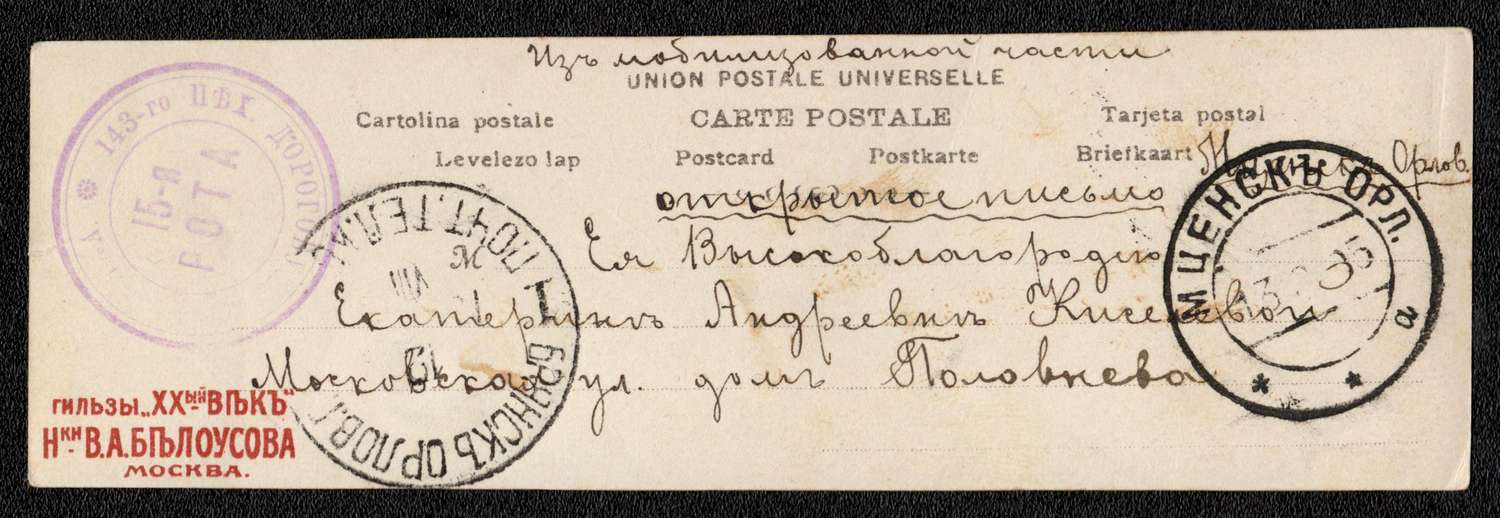 Изъ мобилизованной части
UNION POSTALE UNIVERSELLE
Cartolina postale CARTE POSTALE Tarjeta postal
Levelezo lap Postcard Postkarte Briefkaart
Орлов.
открытое письмо
Ея Высокоблагородію
Екатеринѣ Андреевнѣ Киселевой
Московская ул. домъ Половнева
143-го ПѢХ. ДОРОГОБ
15-я
РОТА
БРЯНСКЪ ОРЛОВ. Г. ПОЧТ. ТЕЛ.
VIII
МЦЕНСКЪ ОРЛ.
ГИЛЬЗЫ „XXЫЙ ВѢКЪ“
Нкн В.А.БѢЛОУСОВА
МОСКВА.